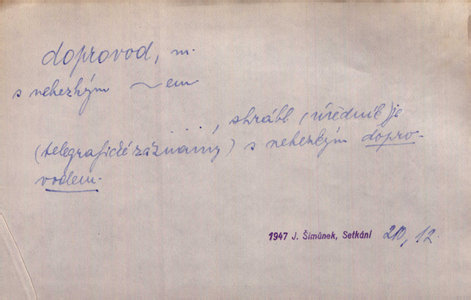 doprovod, m.
s nehezkým ~em
..., shrábl (úředník) je
(telegrafické záznamy) s nehezkým dopro-
vodem.
1947 J. Šimůnek, Setkání 20, 12.